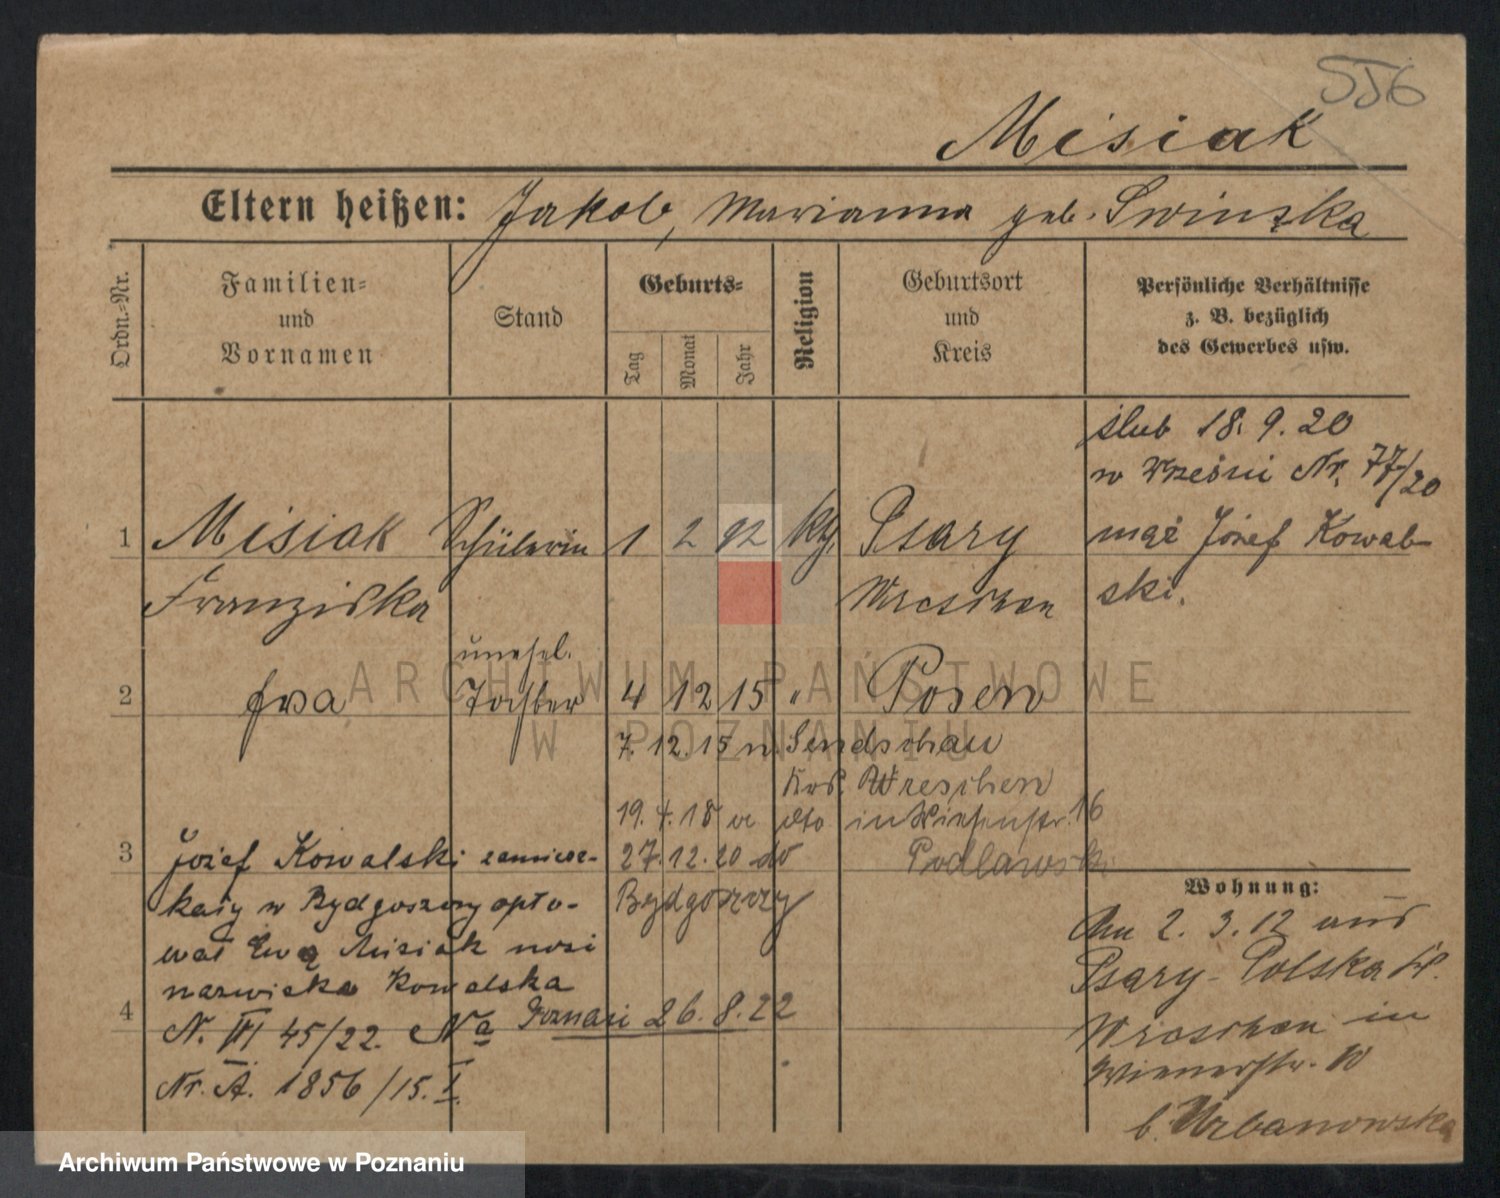 556
Misiak
Eltern heißen: Jakob, Marianna geb. Swinska
Ordn.-Nr.
Familien-
und
Vornamen
Stand
Geburts-
Tag
Monat
Jahr
Religion
Geburtsort
und
Kreis
Persönliche Verhältnisse
z. B. bezüglich
des Gewerbes usw.
ślub 18. 9. 20
w Wrześni Nr. 77/20
1 Misiak Schülerin 1 2 92 kg. Psary
mąż Józef Kowal-
Franziska Wreschen
ski.
unehel.
2 Ewa Tochter 4 12 15 " Posen
7. 12. 15 n. Sendschau
Krs. Wreschen
19. 4. 18 v dto in Wiesenstr. 16
3 Józef Kowalski zamiesz- 27. 12. 20 do Podlawski
kały w Bydgoszczy opto- Bydgoszczy
wał Ewą Misiak nosi
nazwisko Kowalska
4 N. VI 45/22. Poznań 26. 8. 22
Nr. A. 1856/15. I.
Wohnung:
Am 2. 3. 12 aus
Psary-Polska Kr.
Wreschen in
Wienerstr. 10
b. Urbanowska
ARCHIWUM PAŃSTWOWE
W POZNANIU
Archiwum Państwowe w Poznaniu